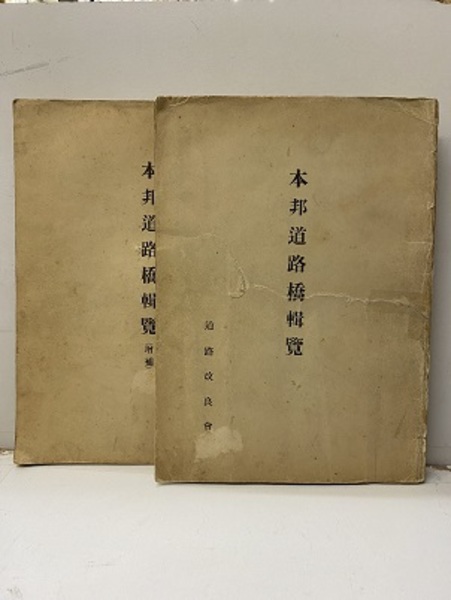 本邦道路橋輯覽
道路改良會
本邦道路橋輯覽
(增補)